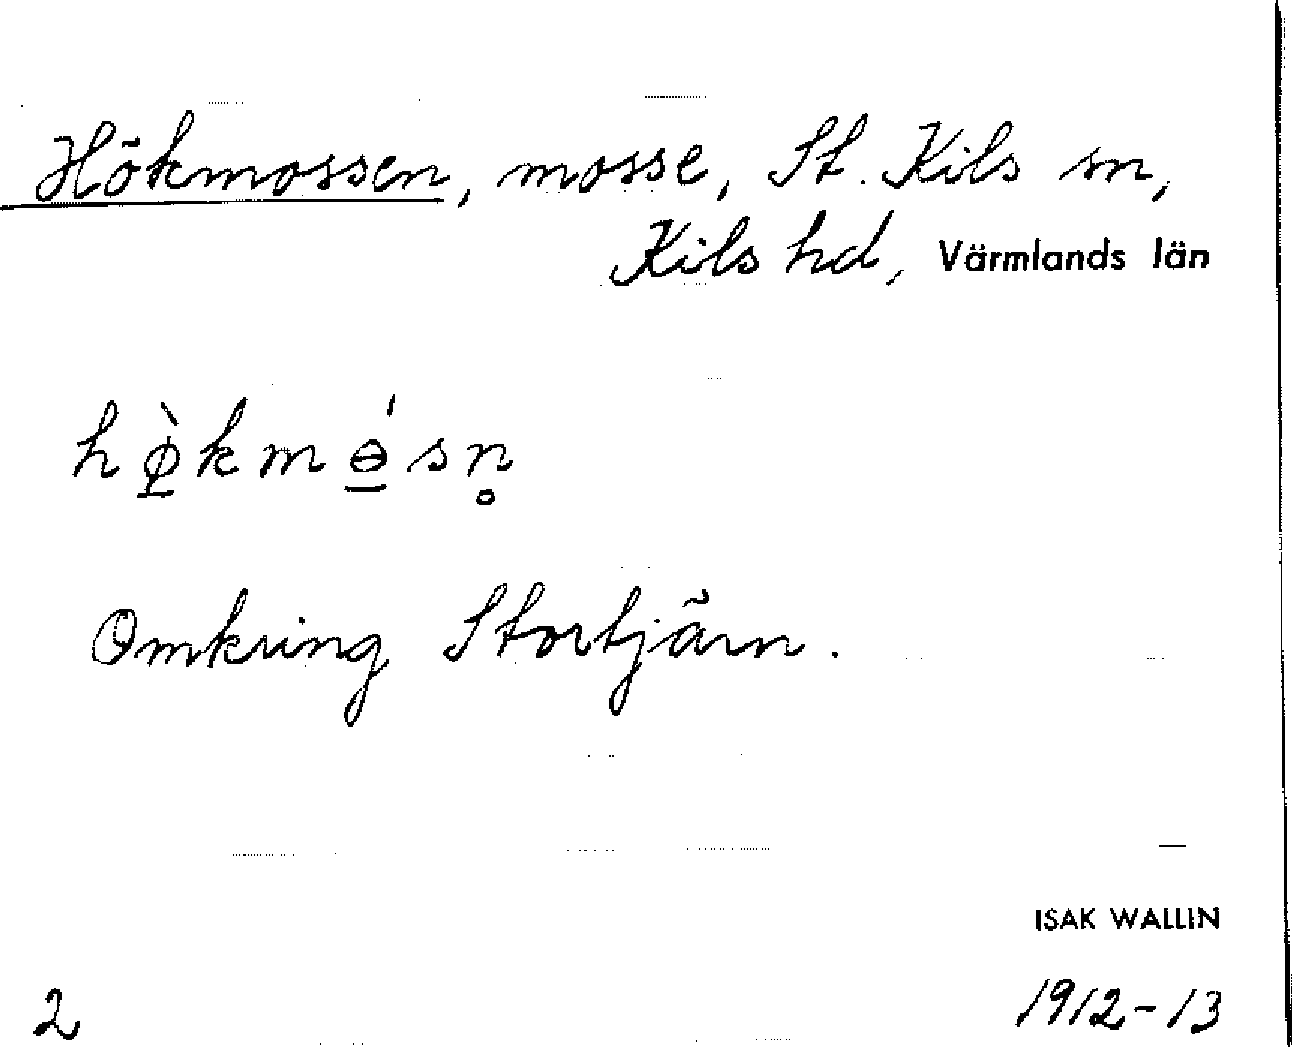 Hökmossen, mosse, St. Kils sn,
Kils hd, Värmlands län
hø̱̀kmɵ̱́sn̥
Omkring Stortjärn.
ISAK WALLIN
2 1912-13